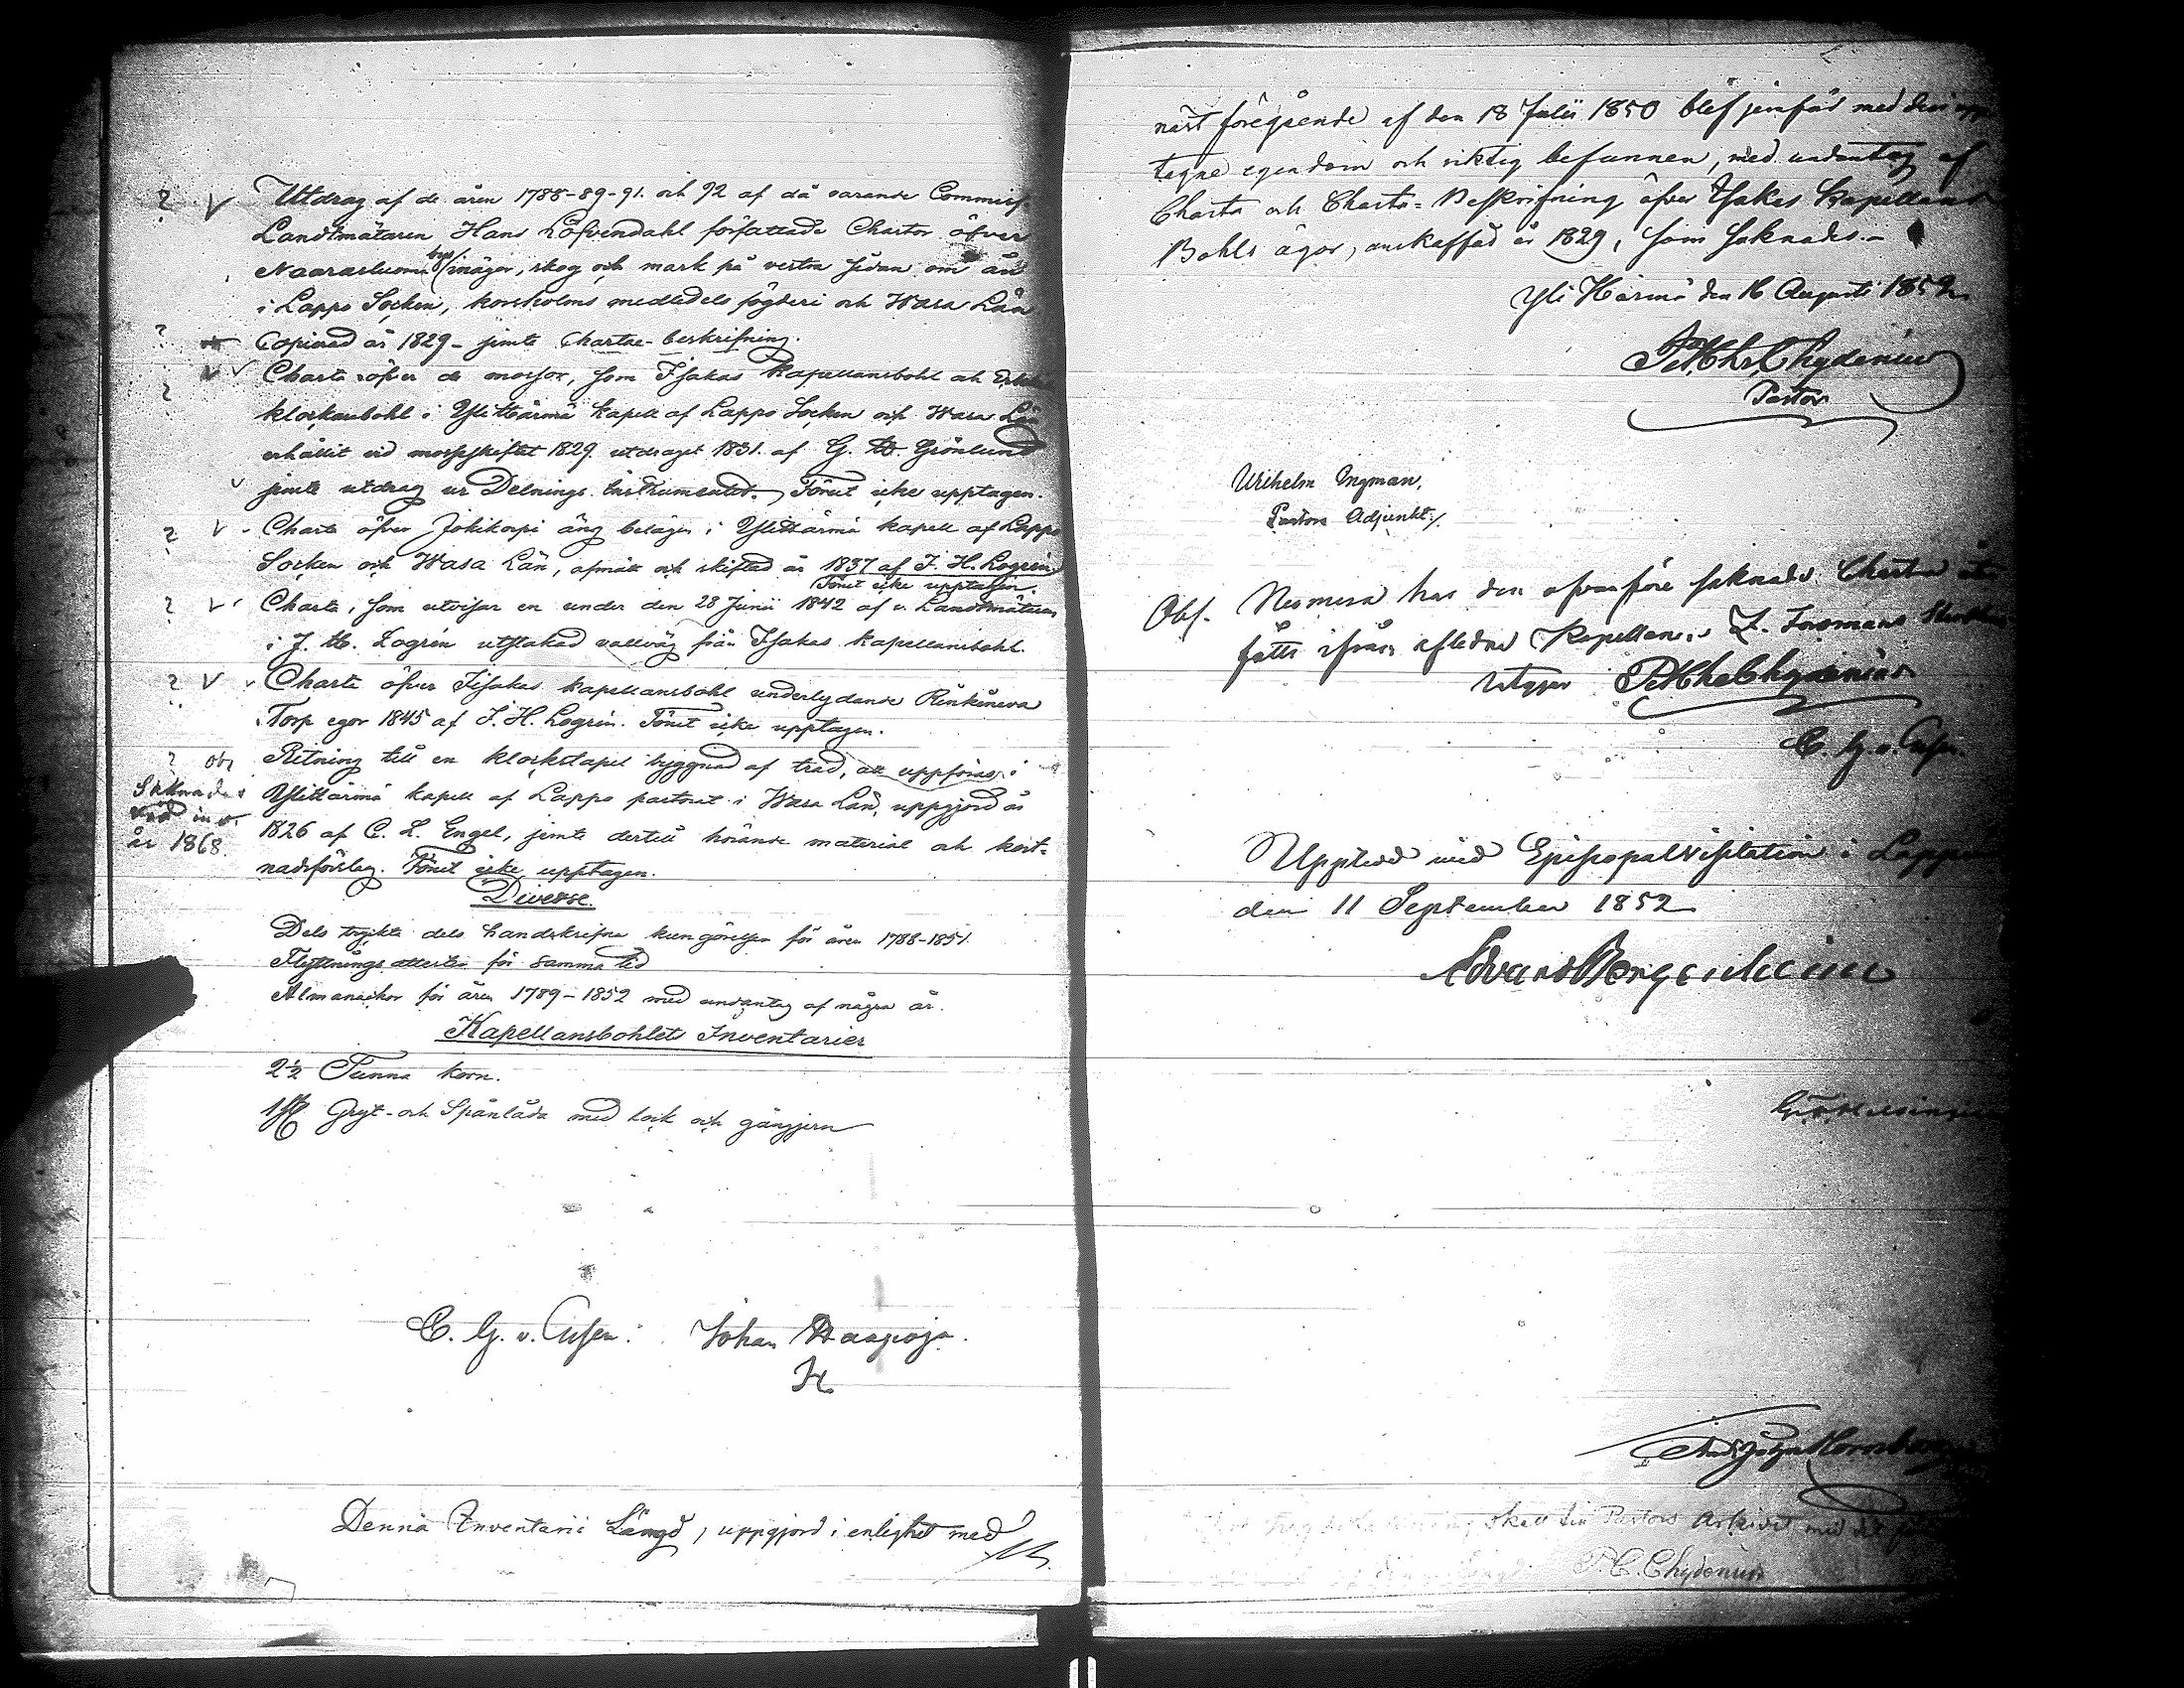 ? V Utdrag af de åren 1788-89-91. och 92 af då varande Commiss.
Landtmätaren Hans Löfvendahl författade Chartor öfver
Naarasluoma bys inägor, skog och mark på vestra sidan om ån
i Lappo Socken, korsholms medledels fögderi och Wasa Län
? Copierad år 1829 - jemte Chartae-beskrifning.
? V V Charta öfver de mossor, som Isakas Kapellansbohl och
klockarebohl i Ylihärmä kapell af Lappo Socken och Wasa Län
erhållit vid mosseskiftet 1829. utdraget 1831. af G. W. Grönlund
V jemte utdrag ur Delnings Instrumentet. Förut icke upptagen.
? V - Charta öfver Jokikorpi äng belägen i Ylihärmä kapell af Lappo
Socken och Wasa Län, afmätt och skiftad år 1837 af J. H. Logrén
Förut icke upptagen
? V Charta, som utvisar en under den 28 Junii 1842 af v. Landtmätaren
i J. H. Logrén utstakad vallväg från Isakas kapellansbohl.
? V Charta öfver Isakas kapellansbohl underlydande Rinkineva
Torp egor 1845 af J. H. Logrén. Förut icke upptagen.
? obs Ritning till en klockstapel byggnad af träd, att uppföras i
Saknades
Ylihärmä kapell af Lappo pastorat i Wasa Län, uppgjord år
vid inv.
1826 af C. L. Engel, jemte dertill hörande material och kost-
år 1868.
nadsförslag. Förut icke upptagen.
Diverse.
Dels tryckta dels handskrifna kungörelser för åren 1788-1851.
Flyttnings attester för samma tid
Almanackor för åren 1789-1852 med undantag af några år.
Kapellansbohlets Inventarier
2½ Tunna korn.
1 st Gryt- och Spånlåda med lock och gångjern
C. G. v. Essen. Johan Haapoja.
Denna Inventarii Längd, uppgjord i enlighet med
näst föregående af den 18 Julii 1850 blef jemförd med den upp
tagne egendom och riktig befunnen, med undantag af
Charta och Charta-Beskrifning öfver Isakas Kapellans
Bohls ägor, anskaffad år 1829, som saknades.-
Yli Härmä den 16 Augusti 1852
Pet. Chr. Chydenius
Pastor
Wilhelm Ingman,
Pastors Adjunkt./.
Obs. Numera har den ofvanföre saknade Chartan åter
fåtts ifrån afledne Kapellanen Z. Forsmans Sterbhus
intygar Pet. Chr. Chydenius
C. G. v. Essen.
Upptedd vid Episcopalvisitation i Lappo
den 11 September 1852
Edvard Bergenheim
skall till Pastors Arkivet med det
P. C. Chydenius